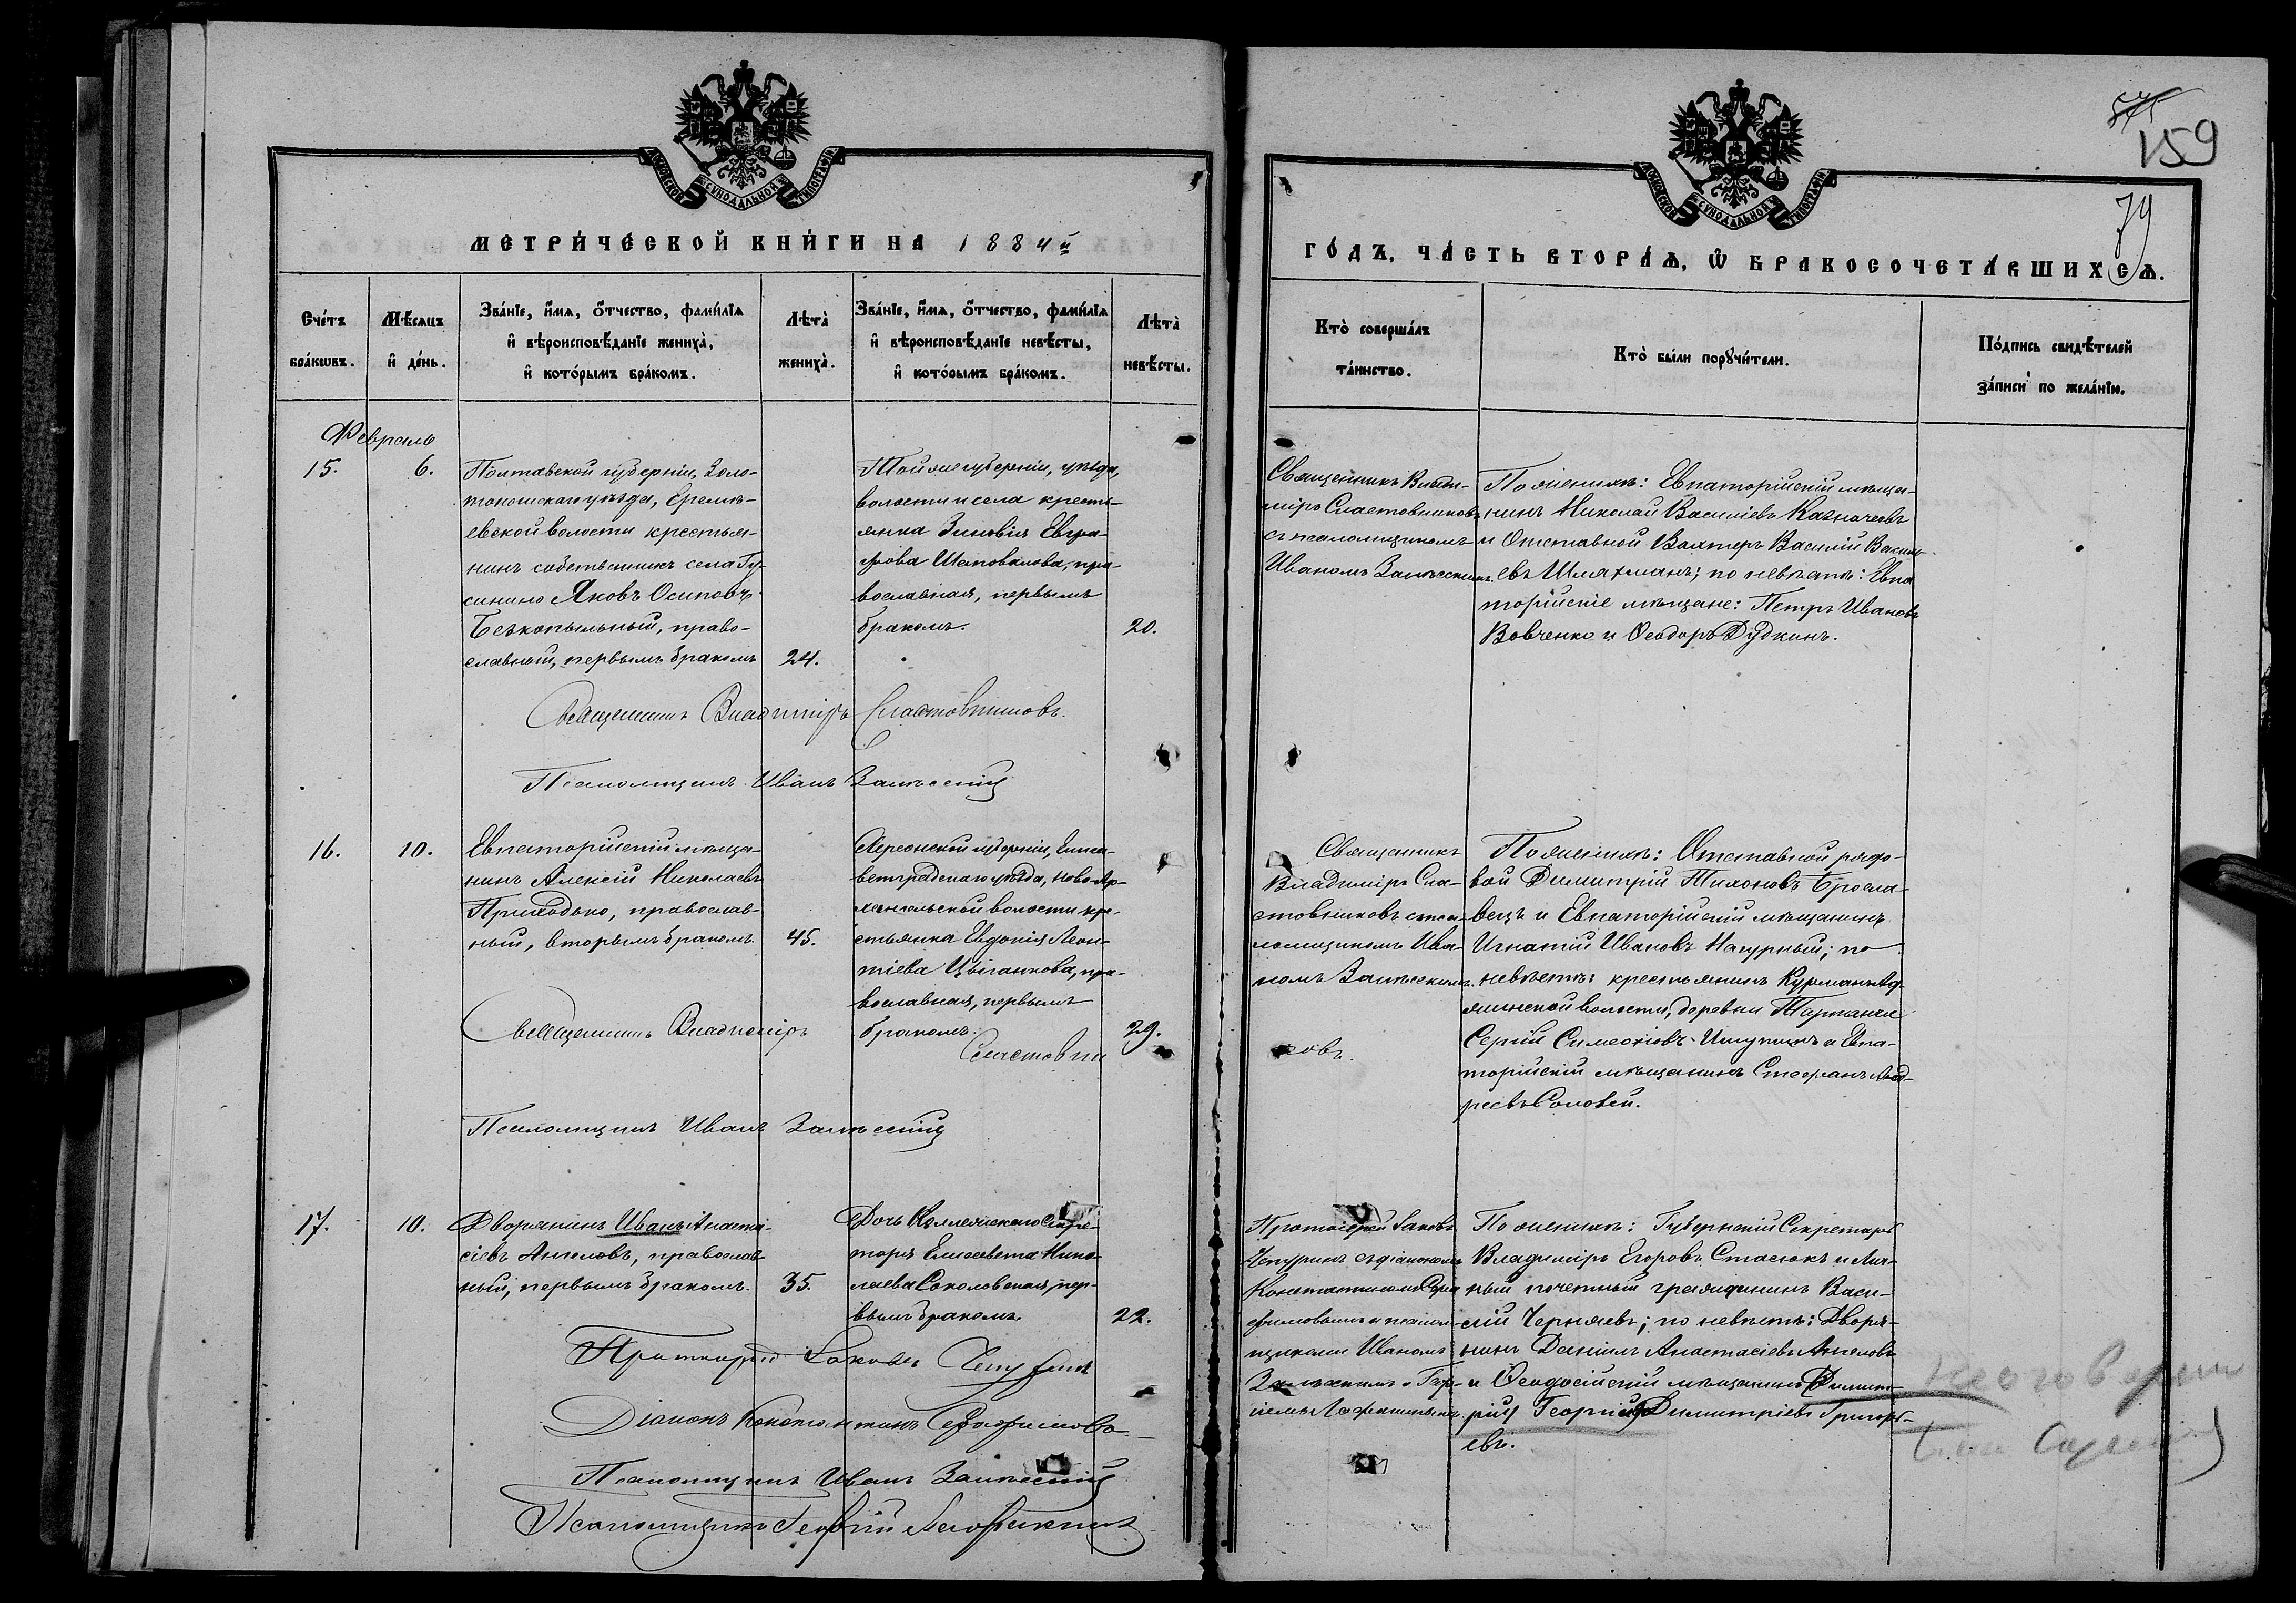 575
159
79
МОСКОВСКОЙ СѴНОДАЛЬНОЙ ТИПОГРАФІИ
МОСКОВСКОЙ СѴНОДАЛЬНОЙ ТИПОГРАФІИ
МЕТРИ́ЧЕСКОЙ КНИ́ГИ НА 1884й
ГО́ДЪ, ЧА́СТЬ ВТОРА́Ѧ, Ѡ БРАКОСОЧЕТА́ВШИХСѦ.
Сче́тъ
бра́кѡвъ.
Мѣ́сѧцъ
и҆ де́нь.
Зва́нїе, и҆́мѧ, ѻ҆́тчество, фами́лїѧ
и҆ вѣроисповѣ́данїе жениха̀,
и҆ кото́рымъ бра́комъ.
Лѣта̀
жениха̀.
Зва́нїе, и҆́мѧ, ѻ҆́тчество, фами́лїѧ
и҆ вѣроисповѣ́данїе невѣ́сты,
и҆ кото́рымъ бра́комъ.
Лѣта̀
невѣ́сты.
Кто̀ соверша́лъ
та́инство.
Кто̀ бы́ли порꙋчи́тели.
По́дпись свидѣ́телей
за́писи по жела́нїю.
Февраль
15.
6.
Полтавской губерніи, Золо-
тоношскаго уѣзда, Еремѣ-
евской волости крестья-
нинъ собственникъ села Гу-
синино Яковъ Осиповъ
Безкопыльный, право-
славный, первымъ бракомъ
24.
Той же губерніи, уѣзда,
волости и села кресть-
янка Зиновія Евгра-
фова Шаповалова, пра-
вославная, первымъ
бракомъ.
20.
Священникъ Влади-
міръ Сластовниковъ
съ псаломщикомъ
Иваномъ Залѣсскимъ.
По женихѣ: Евпаторійскій мѣща-
нинъ Николай Василіевъ Казначеевъ
и Отставной Вахтеръ Василій Василь-
евъ Шлахманъ; по невѣстѣ: Евпа
торійскіе мѣщане: Петръ Ивановъ
Вовченко и Ѳеодоръ Дудкинъ.
Священникъ Владиміръ Сластовниковъ.
Псаломщикъ Иванъ Залѣсскій
16.
10.
Евпаторійскій мѣща-
нинъ Алексій Николаевъ
Приходько, православ-
ный, вторымъ бракомъ.
45.
Херсонской губерніи, Елиса-
ветградскаго уѣзда, Ново-Ар-
хангельской волости кре-
стьянка Евдокія Леон-
тіева Цыганкова, пра-
вославная, первымъ
бракомъ.
29.
Священникъ
Владиміръ Сла-
стовниковъ съ пса-
ломщикомъ Ива-
номъ Залѣсскимъ.
По женихѣ: Отставной рядо-
вой Димитрій Тихоновъ Бросла-
вецъ и Евпаторійскій мѣщанинъ
Игнатій Ивановъ Нагурный; по
невѣстѣ: крестьянинъ Курманъ Ад-
жинской волости, деревни Тарханки
Сергій Симеоновъ Ишутинъ и Евпа-
торійскій мѣщанинъ Стефанъ Анд-
реевъ Соловей.
Священникъ Владиміръ Сластовни
ковъ.
Псаломщикъ Иванъ Залѣсскій
17.
10.
Дворянинъ Иванъ Анаста-
сіевъ Ангеловъ, православ
ный, первымъ бракомъ.
35.
Дочь Коллежскаго Секре-
таря Елисавета Нико-
лаева Соколовская, пер-
вымъ бракомъ
22.
Протоіерей Іаковъ
Чепуринъ съ діакономъ
Константиномъ Сера
фимовымъ и псалом-
щиками Иваномъ
Залѣсскимъ и Геор-
гіемъ
По женихѣ: Губернскій Секретарь
Владиміръ Егоровъ Стасюкъ и Лич-
ный почетный гражданинъ Васи-
лій Черняевъ; по невѣстѣ: Дворя-
нинъ Даніилъ Анастасіевъ Ангеловъ
и Ѳеодосійскій мѣщанинъ Димит-
рій Георгій Димитріевъ Григорь-
евъ.
Протоіерей Іаковъ Чепуринъ
Діаконъ Константинъ Серафимовъ.
Псаломщикъ Иванъ Залѣсскій
Псаломщикъ Георгій